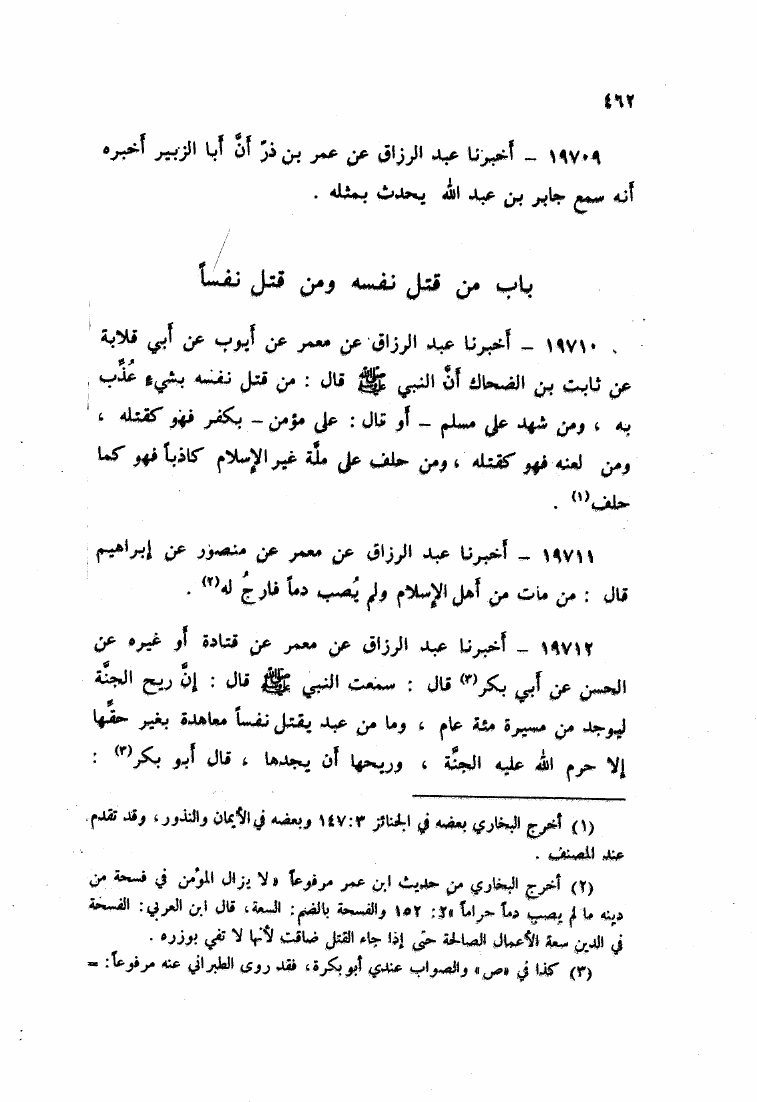 ٤٦٢
١٩٧٠٩ – أخبرنا عبد الرزاق عن عمر بن ذرّ أنَّ أبا الزبير أخبره
أنه سمع جابر بن عبد الله يحدث بمثله .
باب من قتل نفسه ومن قتل نفساً
١٩٧١٠ – أخبرنا عبد الرزاق عن معمر عن أيوب عن أبي قلابة
عن ثابت بن الضحاك أنَّ النبي ﷺ قال : من قتل نفسه بشيءٍ عُذِّب
به ، ومن شهد على مسلم – أو قال : على مؤمن – بكفر فهو كقتله ،
ومن لعنه فهو كقتله ، ومن حلف على ملَّة غير الإسلام كاذباً فهو كما
حلف(١) .
١٩٧١١ – أخبرنا عبد الرزاق عن معمر عن منصور عن إبراهيم
قال : من مات من أهل الإسلام ولم يُصب دماً فارجُ له(٢) .
١٩٧١٢ – أخبرنا عبد الرزاق عن معمر عن قتادة أو غيره عن
الحسن عن أبي بكر(٣) قال : سمعت النبي ﷺ قال : إنَّ ريح الجنَّة
ليوجد من مسيرة مئة عام ، وما من عبد يقتل نفساً معاهدة بغير حقِّها
إلا حرم الله عليه الجنَّة ، وريحها أن يجدها ، قال أبو بكر(٣) :
(١) أخرج البخاري بعضه في الجنائز ٣:‏١٤٧ وبعضه في الأيمان والنذور ، وقد تقدم
عند المصنف .
(٢) أخرج البخاري من حديث ابن عمر مرفوعاً «لا يزال المؤمن في فسحة من
دينه ما لم يصب دماً حراماً» ٢: ١٥٢ والفسحة بالضم: السعة، قال ابن العربي: الفسحة
في الدين سعة الأعمال الصالحة حتى إذا جاء القتل ضاقت لأنها لا تفي بوزره .
(٣) كذا في «ص» والصواب عندي أبو بكرة، فقد روى الطبراني عنه مرفوعاً: =